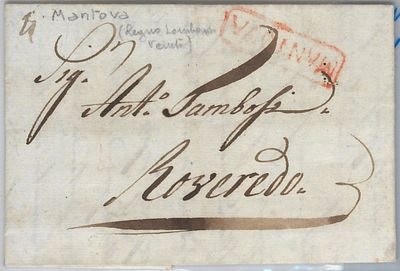 Mantova
(Regno Lombardo
Veneto)
MANTOVA
Sig.r
Ant.o Tambosi
Roveredo.